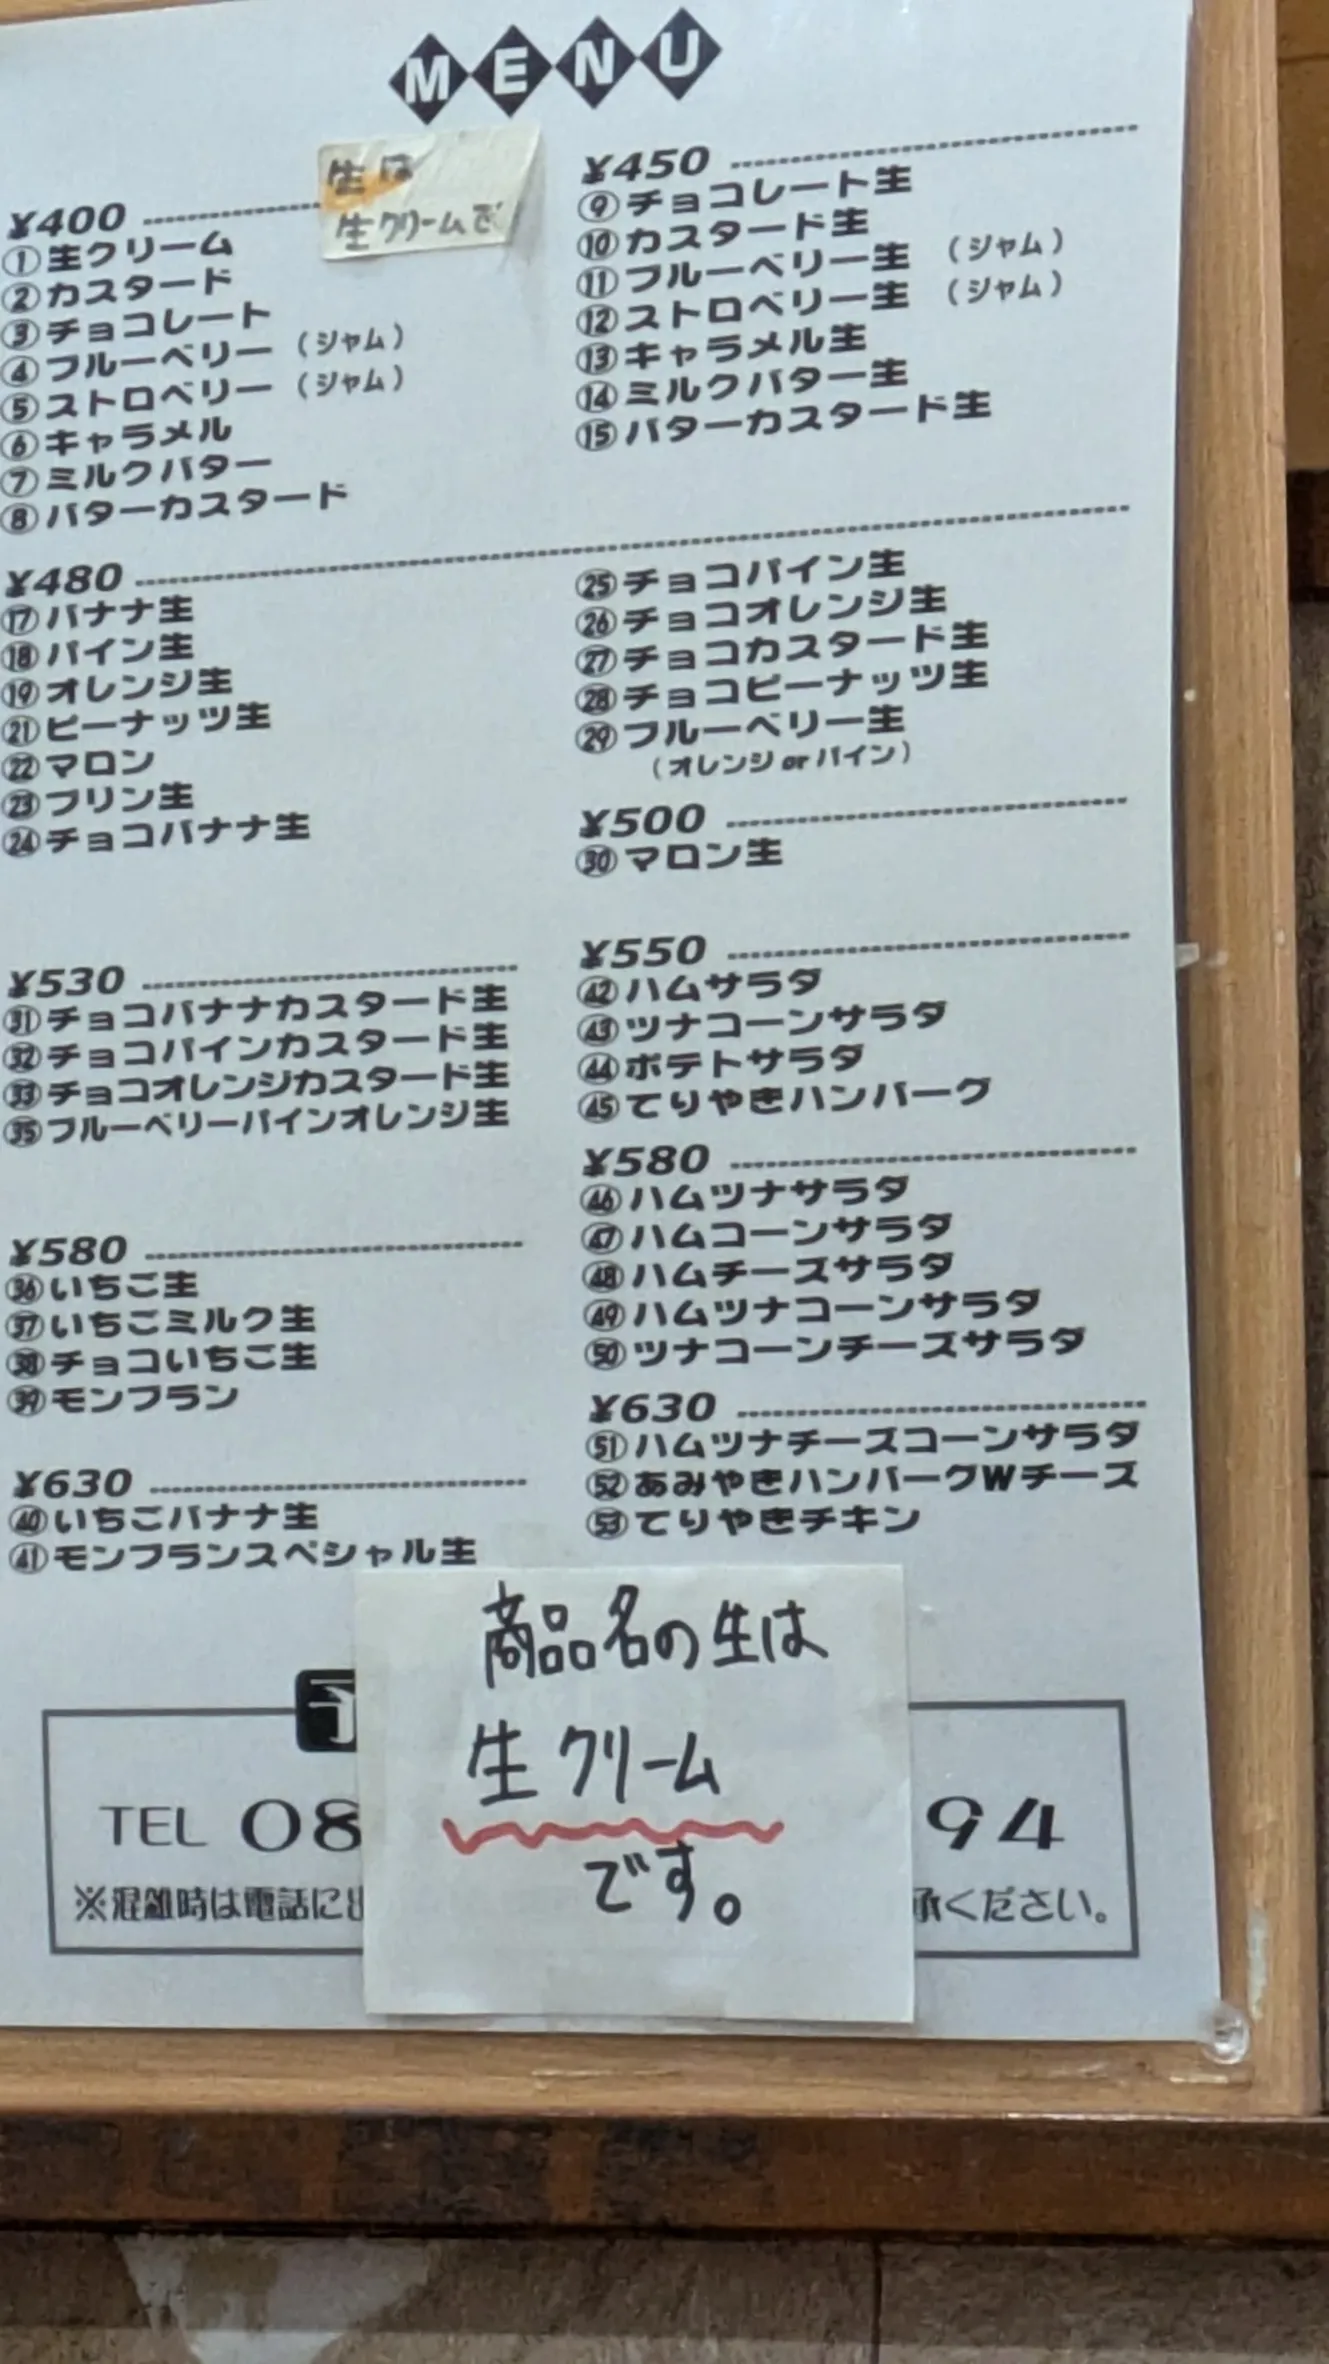 MENU
生は
生クリームで
¥400
①生クリーム
②カスタード
③チョコレート
④ブルーベリー（ジャム）
⑤ストロベリー（ジャム）
⑥キャラメル
⑦ミルクバター
⑧バターカスタード
¥450
⑨チョコレート生
⑩カスタード生
⑪ブルーベリー生（ジャム）
⑫ストロベリー生（ジャム）
⑬キャラメル生
⑭ミルクバター生
⑮バターカスタード生
¥480
⑰バナナ生
⑱パイン生
⑲オレンジ生
㉑ピーナッツ生
㉒マロン
㉓プリン生
㉔チョコバナナ生
㉕チョコパイン生
㉖チョコオレンジ生
㉗チョコカスタード生
㉘チョコピーナッツ生
㉙ブルーベリー生
（オレンジorパイン）
¥500
㉚マロン生
¥530
㉛チョコバナナカスタード生
㉜チョコパインカスタード生
㉝チョコオレンジカスタード生
㉟ブルーベリーパインオレンジ生
¥550
㊷ハムサラダ
㊸ツナコーンサラダ
㊹ポテトサラダ
㊺てりやきハンバーグ
¥580
㊱いちご生
㊲いちごミルク生
㊳チョコいちご生
㊴モンブラン
¥580
㊻ハムツナサラダ
㊼ハムコーンサラダ
㊽ハムチーズサラダ
㊾ハムツナコーンサラダ
㊿ツナコーンチーズサラダ
¥630
㊵いちごバナナ生
㊶モンブランスペシャル生
¥630
51ハムツナチーズコーンサラダ
52あみやきハンバーグWチーズ
53てりやきチキン
商品名の生は
生クリーム
です。
TEL 08
94
※混雑時は電話に
承ください。